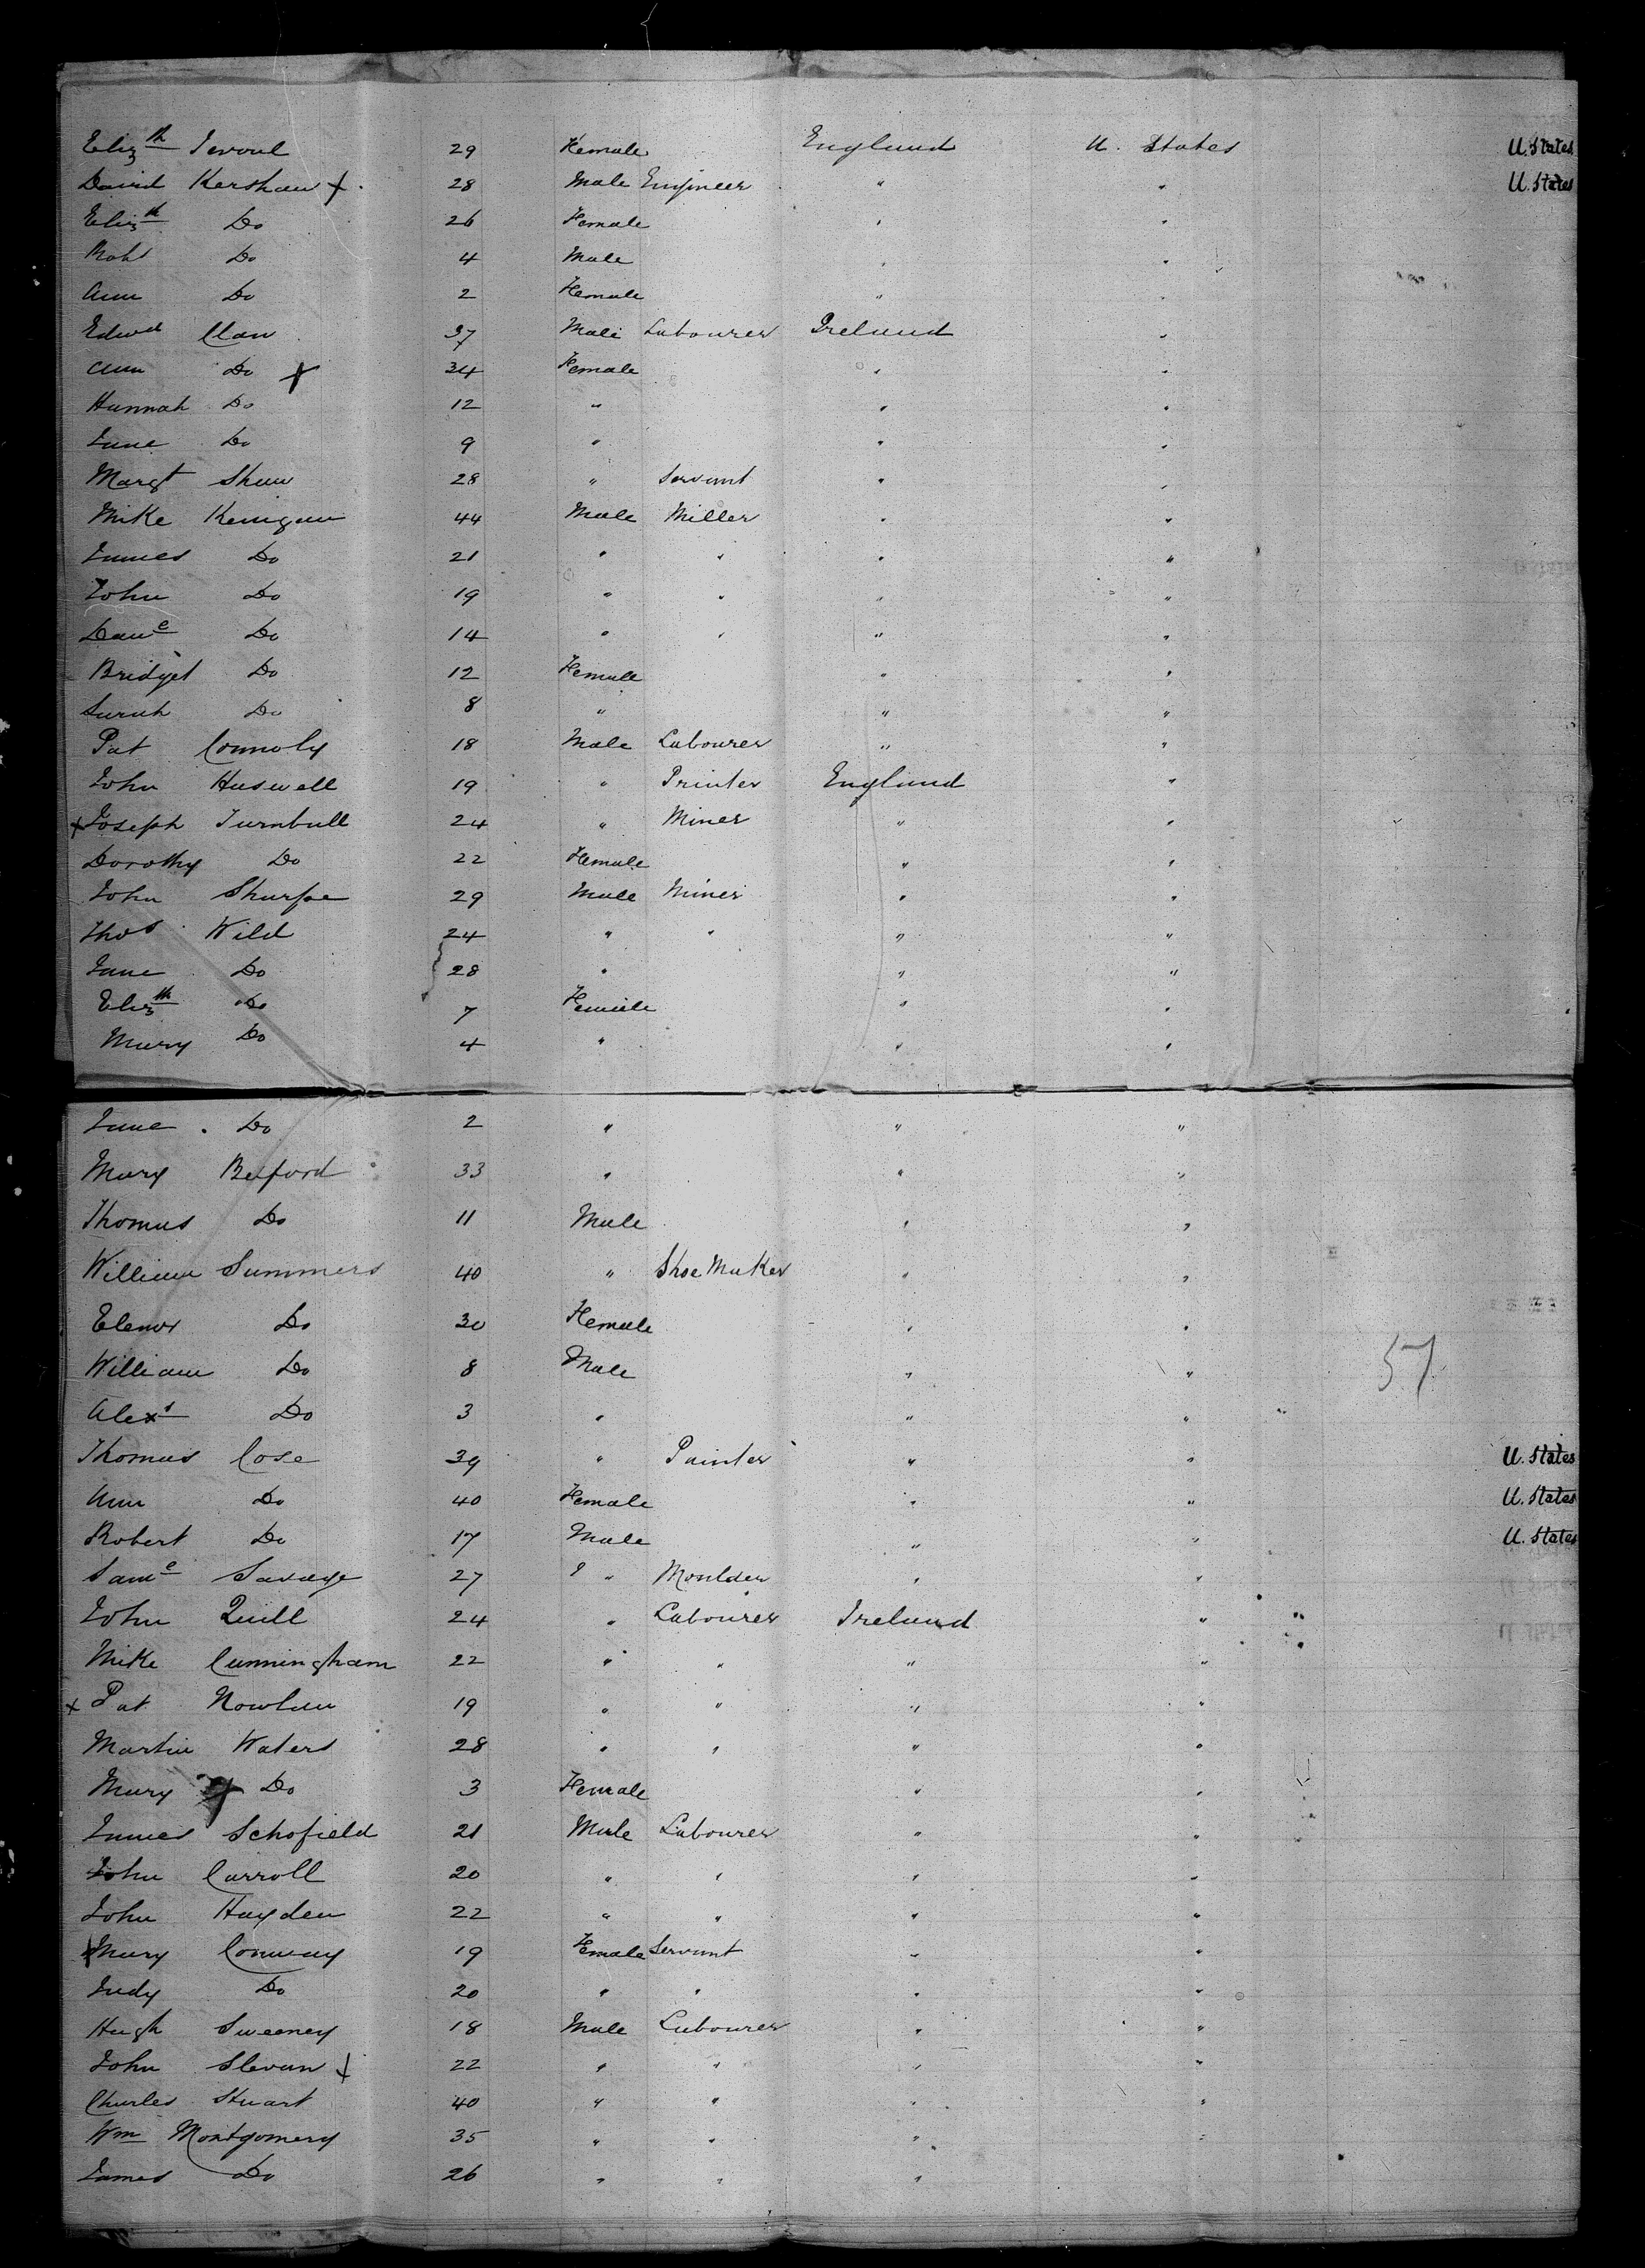 Elizth Jevoul 29 Female England U. States U. States
David Kershaw 28 Male Engineer " " U. States
Elizth Do 26 Female " "
Robt Do 4 Male " "
Ann Do 2 Female " "
Edwd Claw 37 Male Labourer Ireland "
Ann Do 34 Female " "
Hannah Do 12 " " "
Jane Do 9 " " "
Margt Shaw 28 " Servant " "
Mike Kerrigan 44 Male Miller " "
James Do 21 " " " "
John Do 19 " " " "
Dane Do 14 " " " "
Bridget Do 12 Female " "
Sarah Do 8 " " "
Pat Connoly 18 Male Labourer " "
John Haswell 19 " Printer England "
Joseph Turnbull 24 " Miner " "
Dorothy Do 22 Female " "
John Sharpe 29 Male Miner " "
Thos Wild 24 " " " "
Jane Do 28 " " "
Elizth Do 7 Female " "
Mary Do 4 " " "
Jane Do 2 " " "
Mary Bedford 33 " " "
Thomas Do 11 Male " "
William Summers 40 " Shoe Maker " "
Elenor Do 30 Female " "
William Do 8 Male " "
Alexr Do 3 " " "
57
Thomas Cose 39 " Painter " " U. States
Ann Do 40 Female " " U. States
Robert Do 17 Male " " U. States
Saml Savage 27 " Moulder " "
John Quill 24 " Labourer Ireland "
Mike Cunningham 22 " " " "
Pat Nowlan 19 " " " "
Martin Waters 28 " " " "
Mary Do 3 Female " "
James Schofield 21 Male Labourer " "
John Carroll 20 " " " "
John Hayden 22 " " " "
Mary Conway 19 Female Servant " "
Judy Do 20 " " " "
Hugh Sweeney 18 Male Labourer " "
John Slevan 22 " " " "
Charles Stuart 40 " " " "
Wm Montgomery 35 " " " "
James Do 26 " " "